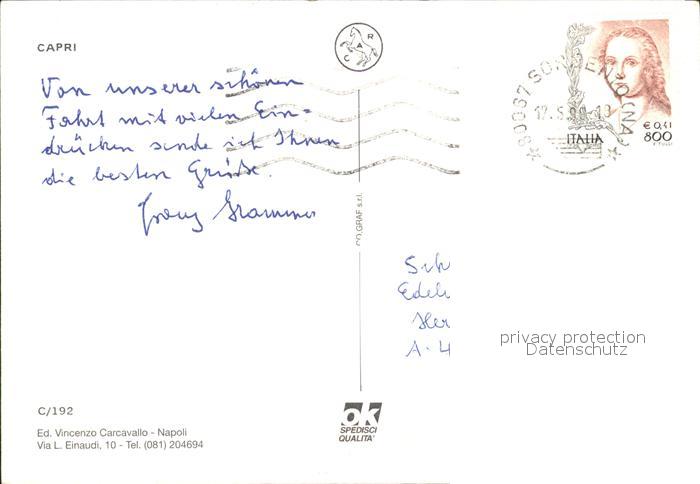 CAPRI
C A R
Von unserer schönen
Fahrt mit vielen Ein=
drücken sende ich Ihnen
die besten Grüße.
Franz
80067 SORRENTO (NA)
ITALIA
€ 0,41
800
CO.GRAF s.r.l.
Her
A-4
privacy protection
Datenschutz
C/192
Ed. Vincenzo Carcavallo - Napoli
Via L. Einaudi, 10 - Tel. (081) 204694
ok
SPEDISCI
QUALITA'